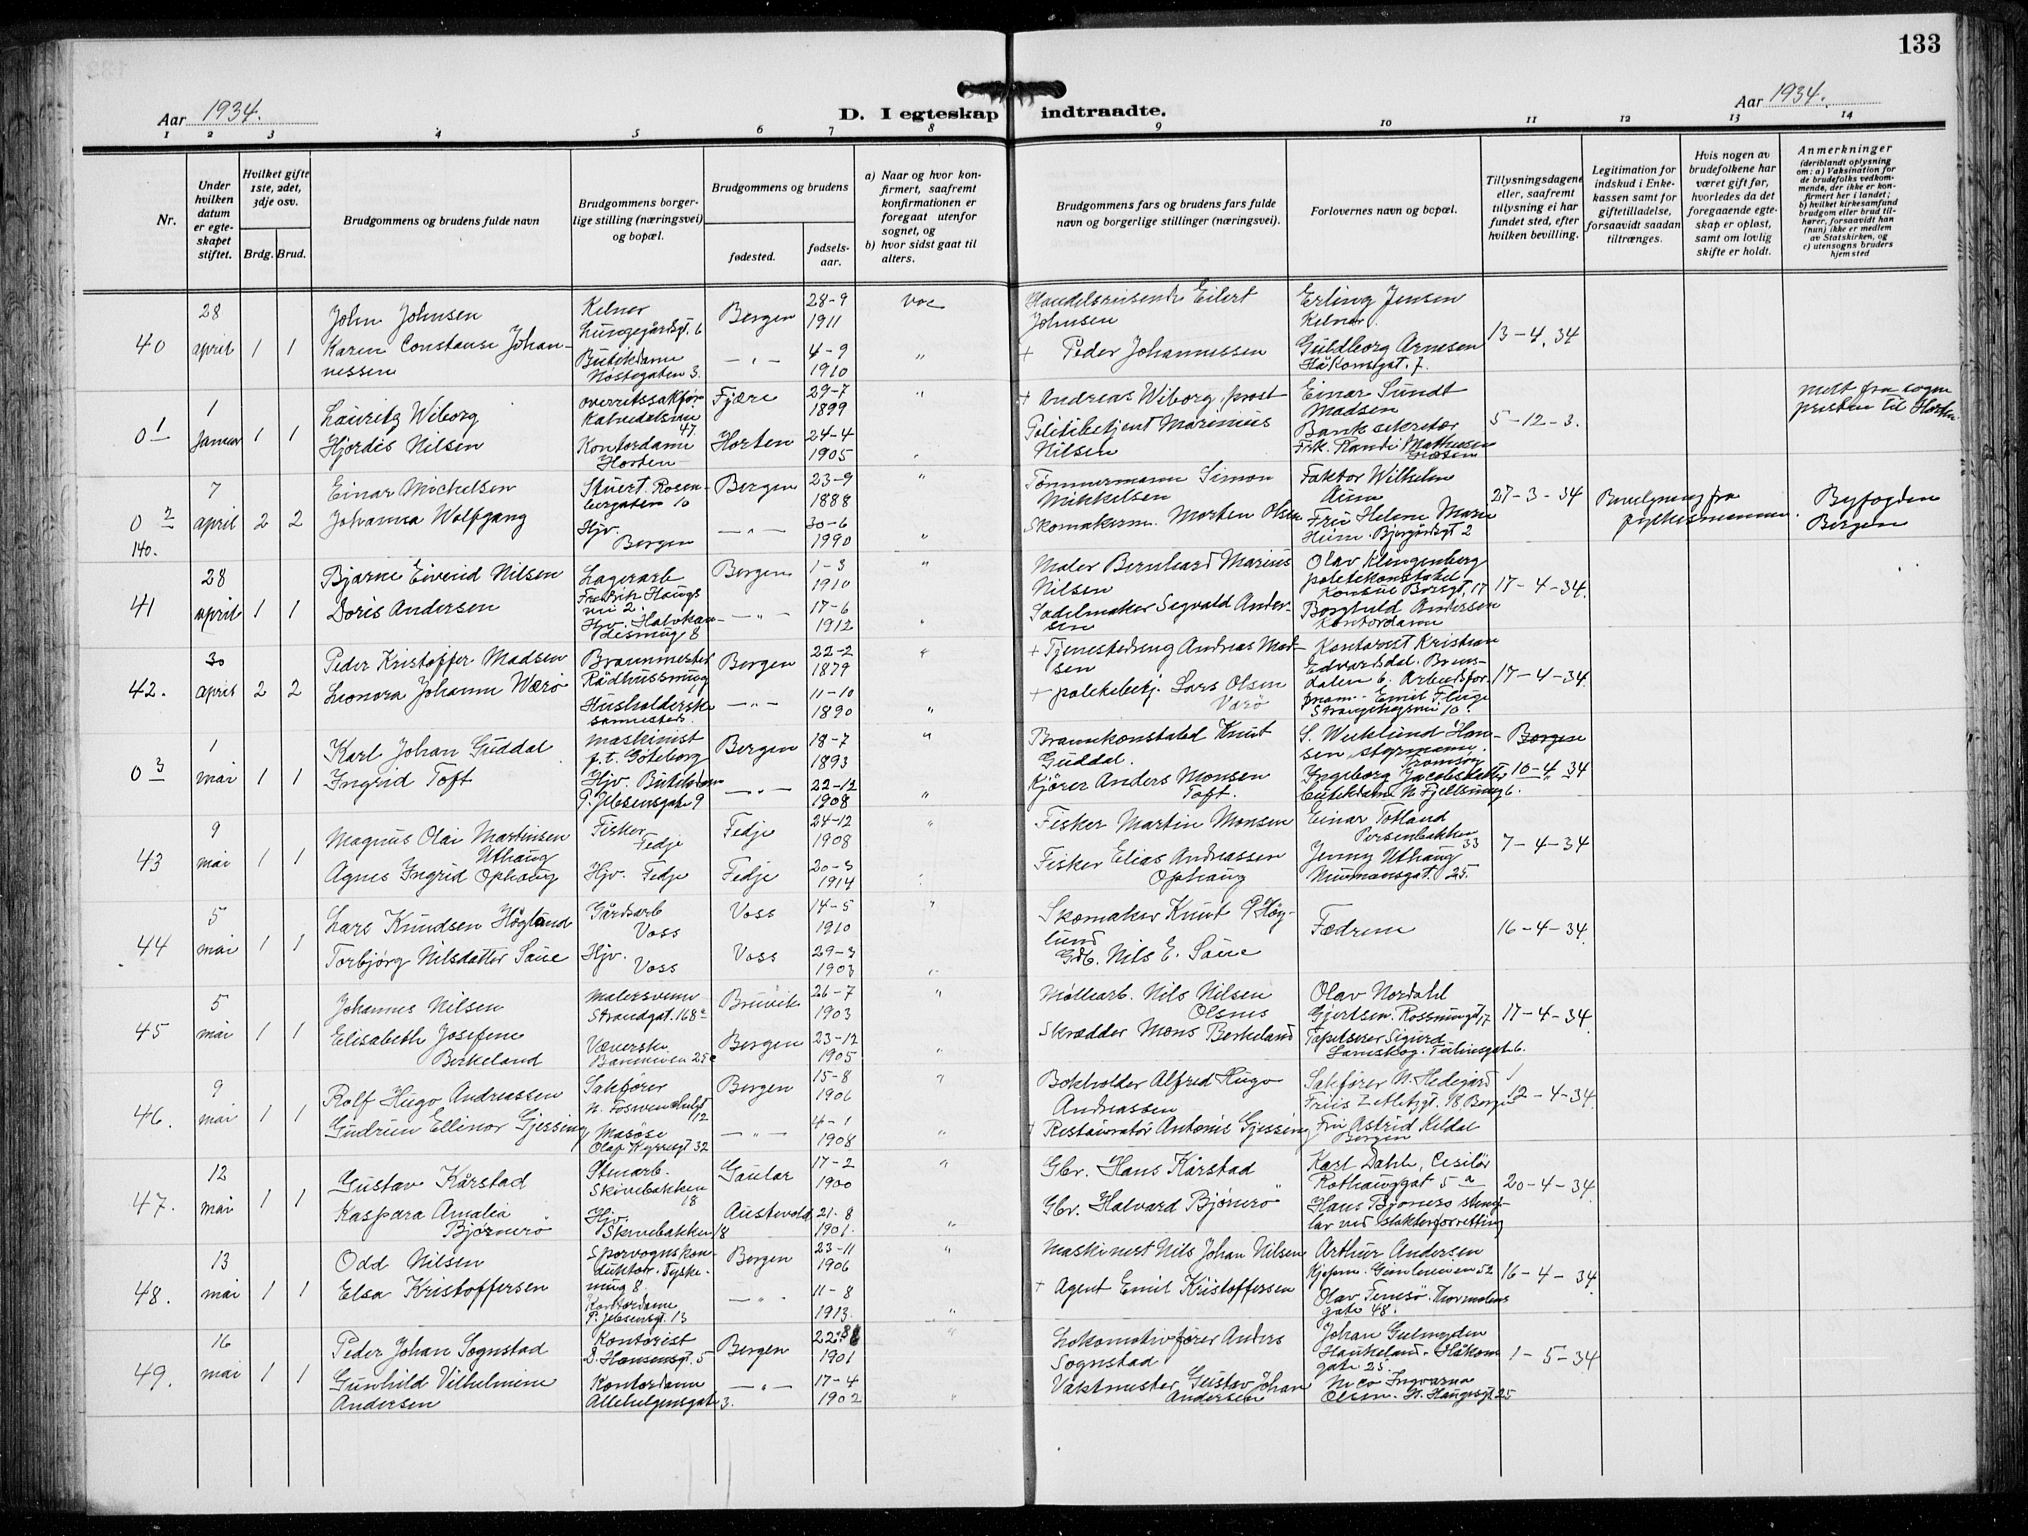 133
Aar 1934.
D. I egteskap indtraadte.
Aar 1934.
1 2 3 4 5 6 7 8 9 10 11 12 13 14
Nr.
Under hvilken datum er egteskapet stiftet.
Hvilket gifte 1ste, 2det, 3dje osv.
Brdg. Brud.
Brudgommens og brudens fulde navn
Brudgommens borgerlige stilling (næringsvei) og bopæl.
Brudgommens og brudens
fødested.
fødselsaar.
a) Naar og hvor konfirmert, saafremt konfirmationen er foregaat utenfor sognet, og
b) hvor sidst gaat til alters.
Brudgommens fars og brudens fars fulde navn og borgerlige stillinger (næringsvei).
Forlovernes navn og bopæl.
Tillysningsdagene eller, saafremt tillysning ei har fundet sted, efter hvilken bevilling.
Legitimation for indskud i Enkekassen samt for giftetilladelse, forsaavidt saadan tiltrænges.
Hvis nogen av brudefolkene har været gift før, hvorledes da det foregaaende egteskap er opløst, samt om lovlig skifte er holdt.
Anmerkninger
(deriblandt oplysning om: a) Vaksination for de brudefolks vedkommende, der ikke er konfirmert her i landet; b) hvilket kirkesamfund brudgom eller brud tilhører, forsaavidt han (hun) ikke er medlem av Statskirken, og c) utensogns bruders hjemsted
40 28 april 1 1
John Johnsen
Karen Constanse Johannessen
Kelner
Lungegårdsgt. 6
Butikdame
Nøstegaten 3.
Bergen
— " —
28-9 1911
4-9 1910
Handelsreisende Eilert Johnsen
+ Peder Johannessen
Erling Jensen
Kelner.
Guldborg Arnesen
Håkonsgat. 7.
13-4.34
0 1 1 Januar 1 1
Lauritz Wiborg
Hjørdis Nilsen
overretssakfør
Kalvedalsvei 47.
Kontordame
Horten
Fjære
Horten
29-7 1899
24-4 1905
+ Andreas Wiborg, prost
Politibetjent Marinius Nilsen
Einar Sundt Madsen
Banksekretær
Frk. Randi Mathiesen
5-12-3.
melt fra sogne
presten til Horten
0 2 140. 7 april 2 2
Einar Michelsen
Johanna Wolfgang
Stuert. Rosenbergaten 10
Hjv.
Bergen
Bergen
— " —
23-9 1888
30-6 1990
Tømmermann Simon Mikkelsen
Skomakerm. Morten Olsen
Faktor Wilhelm
Fru Helene Marie
Heim. Bjergårdsgt 2
27-3-34
Bevilgning fra
fylkesmannen.
Byfogden
Bergen
41 28 april 1 1
Bjarne Eivind Nilsen
Doris Andersen
Lagerarb
Fredrik Haugs vei 2.
Hjv. Halvkandesmug 8
Bergen
— " —
1-3 1910
17-6 1912
Maler Bernhard Marius Nilsen
Sadelmaker Segvald Andersen
Olav Klingenberg
politikonstabel
Konsul Børsgt. 17
Borghild Andersen
Kontordame
17-4-34.
42. 30 april 2 2
Peder Kristoffer Madsen
Leonora Johanne Værø
Brannmester
Rådhussmug
Husholderske
sammested.
Bergen
— " —
22-2 1879
11-10 1890
+ Tjenestedreng Andreas Madsen
+ politibetj. Lars Olsen Værø
Kontorist Kristian
Edvardsdal. Bremsdalen 6. Arbeidsform. Emil Fluge
Strangehagsvei 10.
17-4-34.
0 3 1 mai 1 1
Karl Johan Guddal
Ingrid Toft
maskinist
p.t. Göteborg
Hjv. Butikdame
P. Jebsensgate 9
Bergen
— " —
18-7 1893
22-12 1908
Brannkonstabel Knut Guddal.
Kjører Anders Monsen Toft.
S. Wicklund Hansen styrmann.
Tromsøy
Ingeborg Jacobsdatter
butikdame N. Fjellsmug 6.
Bergen
10-4-34
43 9 mai 1 1
Magnus Olai Martinsen Uthaug
Agnes Ingrid Ophaug
Fisker
Fedje
Hjv. Fedje
Fedje
Fedje
24-12 1908
20-3 1914
Fisker Martin Monsen
Fisker Elias Andreassen Ophaug
Einar Totland
Persenbakken 33
Jenny Uthaug
Neumansgat. 25.
7-4-34
44 5 mai 1 1
Lars Knudsen Høglund
Torbjørg Nilsdatter Saue
Gårdsarb
Voss
Hjv.
Voss
Voss
Voss
14-5 1910
29-3 1903
Skomaker Knut P Høglund
Gdb. Nils E. Saue
Fædrene
16-4-34.
45 5 mai 1 1
Johannes Nilsen
Elisabeth Josefine Birkeland
Malersvenn
Strandgat. 168a
Væverske
Bruvik
Bergen
26-7 1903
23-12 1905
Møllearb. Nils Nilsen Olsnes
Skrædder Mons Berkeland
Olav Nordahl
Gjertsen. Rossmugt 17
Tapetserer Sigurd
Tulinsgat 6.
17-4-34.
46. 9 mai 1 1
Rolf Hugo Andreassen
Gudrun Ellinor Gjessing
Sakfører
12
Masøse
Olaf Kyrresgt 32
Bergen
— " —
15-8 1906
4-1 1908
Bokholder Alfred Hugo Andreassen
+ Restauratør Antonie Gjessing
Sakfører N. Hedegård
Friis Zetlitzgt. 18 Bergen
Fru Astrid Kildal
Bergen
12-4-34.
47. 12 mai 1 1
Gustav Kårstad
Kaspara Amalia Bjørnerø
Stenarb.
Skivebakken 18
Hjv.
Skivebakken 18
Gaular
Austevold
17-2 1900
21-8 1901.
Gbr. Hans Kårstad
Gbr. Halvard Bjørnerø
Karl Dahle, Cesilør
Rothauggat 5 a
Hans Bjørnerø
20-4-34.
48. 13 mai 1 1
Odd Nilsen
Elsa Kristoffersen
Sporvognskonduktør. Tyskemug 8.
Kontordame
P. Jebsensgt. 13
Bergen
— " —
23-11 1906
11-8 1913.
Maskinest Nils Johan Nilsen
+ Agent Emil Kristoffersen
Arthur Andersen
Gimleveien 52
Olav Temsø. Thormølens
gate 48.
16-4-34.
49. 16 mai 1 1
Peder Johan Sognstad
Gunhild Vilhelmine Andersen
Kontorist
D. Hansensgt. 5
Kontordame
Allehelgensgate 3.
Bergen
— " —
1901
17-4 1902
Lokomotivfører Anders Sognstad
Vaktmester Gustav Johan Andersen
Johan Gulmyden
Haukeland. Håkonsgate 25.
Olsen. H. Haugesgt 25
1-5-34